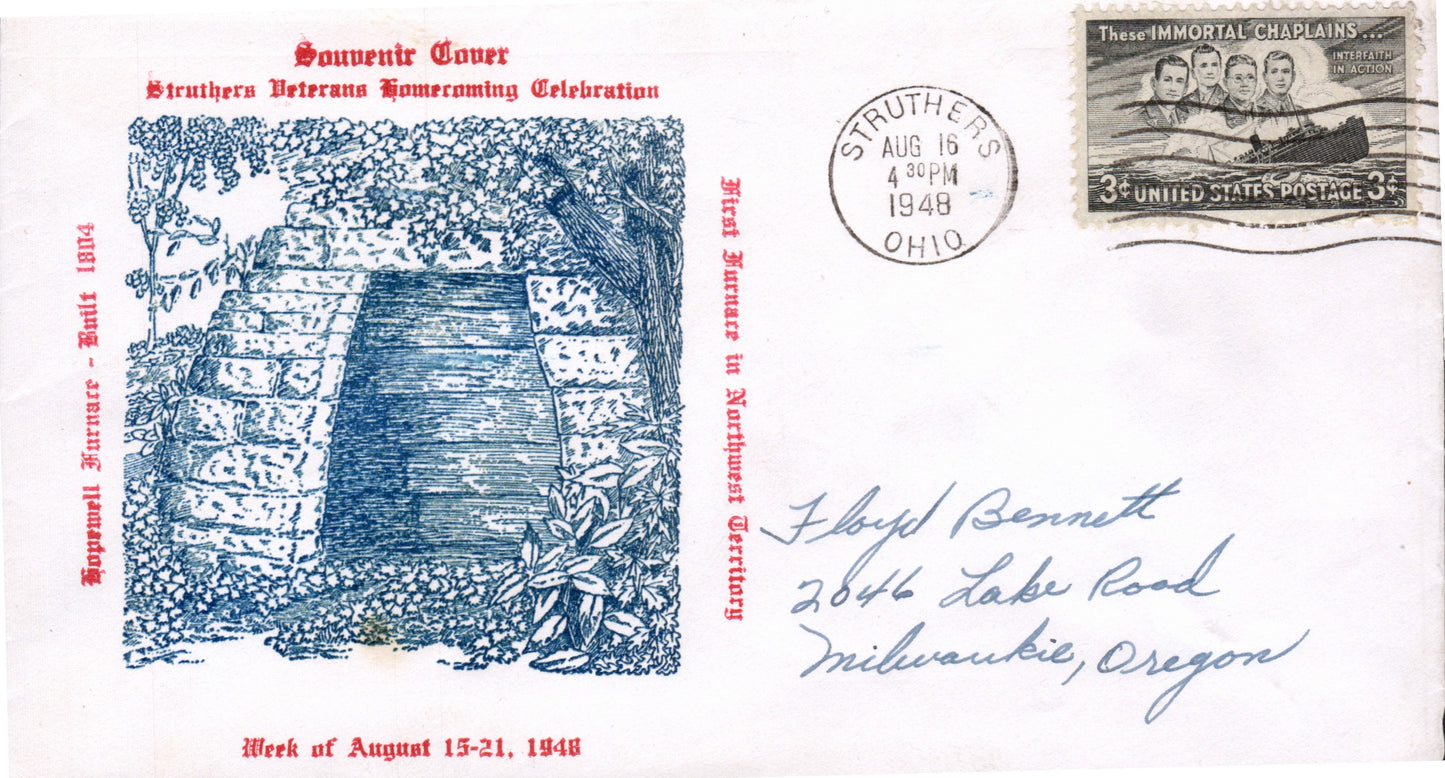 Souvenir Cover
Struthers Veterans Homecoming Celebration
Hopewell Furnace - Built 1804
First Furnace in Northwest Territory
Week of August 15-21, 1948
STRUTHERS
AUG 16
4 30 PM
1948
OHIO
These IMMORTAL CHAPLAINS...
INTERFAITH
IN ACTION
3¢ UNITED STATES POSTAGE 3¢
Floyd Bennett
2046 Lake Road
Milwaukie, Oregon